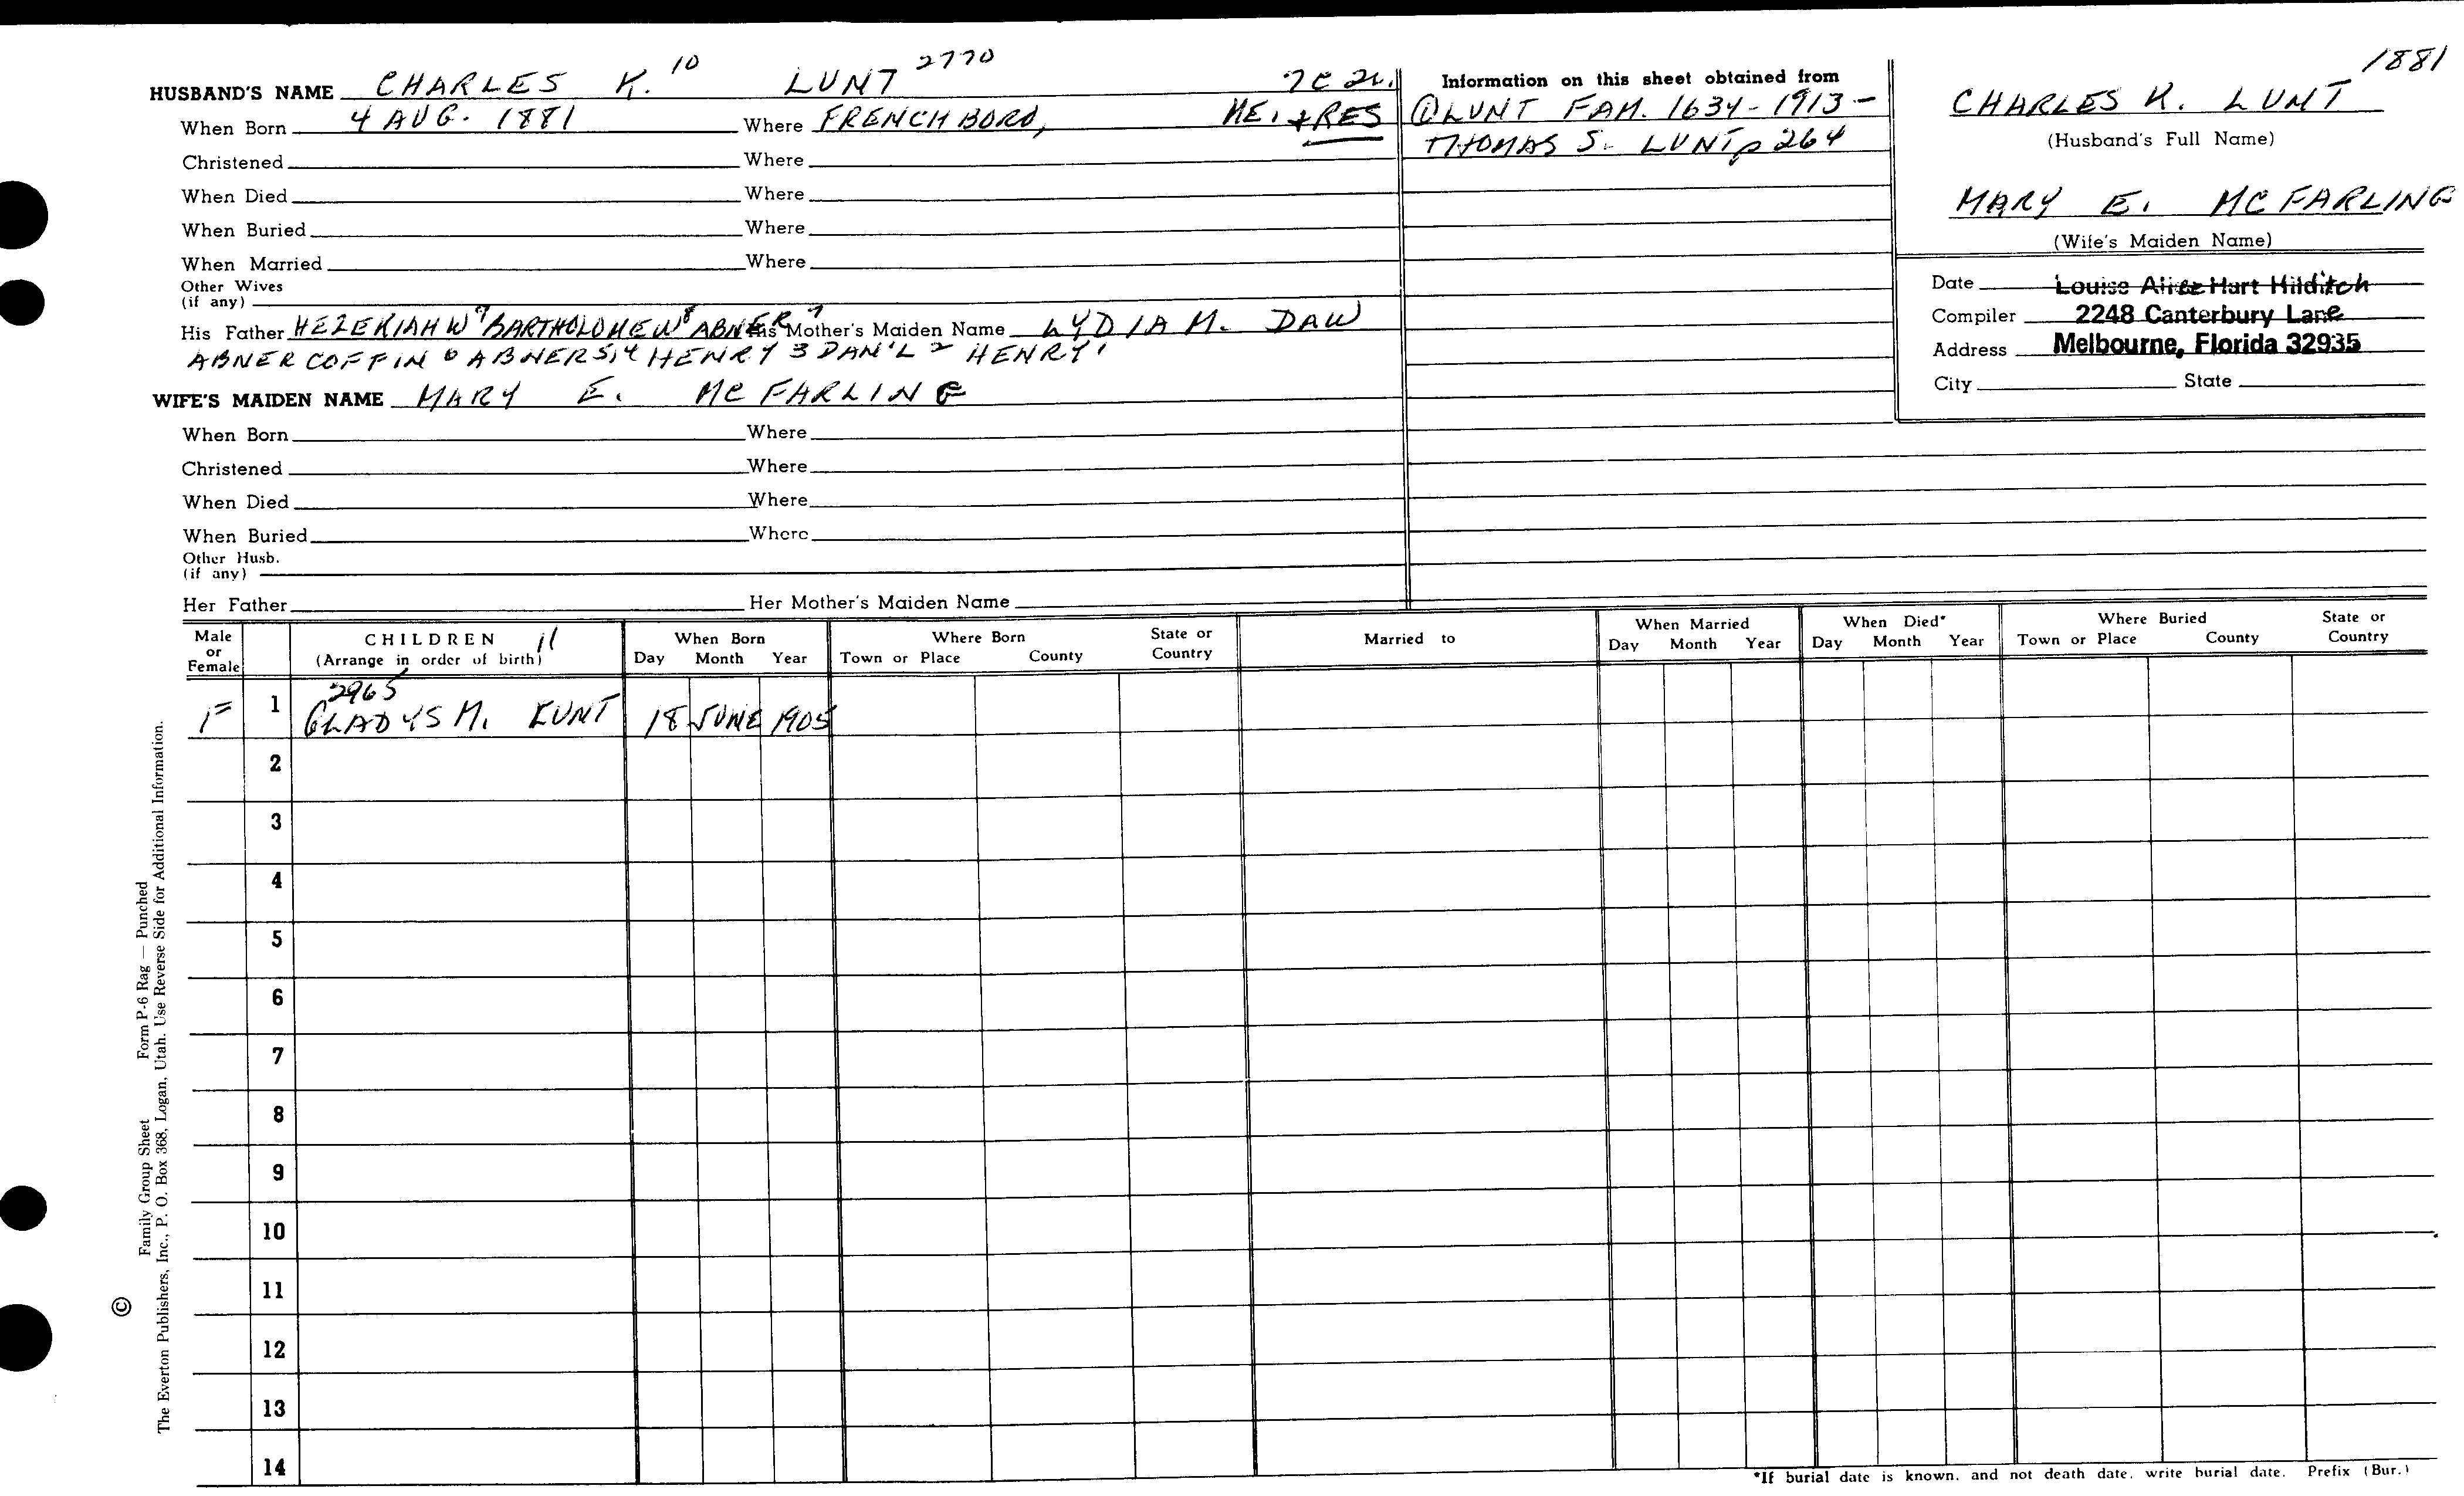 1881
HUSBAND'S NAME CHARLES K. 10 LUNT 2770
When Born 4 AUG. 1881 Where FRENCHBORO, ME. + RES
Christened Where
When Died Where
When Buried Where
When Married Where
Other Wives
(if any)
His Father HEZEKIAH W 9 BARTHOLOMEW 8 ABNER 7 His Mother's Maiden Name LYDIA M. DAW
ABNER COFFIN 6 ABNER 5,4 HENRY 3 DAN'L 2 HENRY 1
WIFE'S MAIDEN NAME MARY E. MC FARLING
When Born Where
Christened Where
When Died Where
When Buried Where
Other Husb.
(if any)
Her Father Her Mother's Maiden Name
Information on this sheet obtained from
① LUNT FAM. 1634-1913-
THOMAS S. LUNT p 264
CHARLES K. LUNT
(Husband's Full Name)
MARY E. MC FARLING
(Wife's Maiden Name)
Date Louise Alice Hart Hilditch
Compiler 2248 Canterbury Lane
Address Melbourne, Florida 32935
City State
Male or Female
CHILDREN 11
(Arrange in order of birth)
When Born
Day Month Year
Where Born
Town or Place County State or Country
Married to
When Married
Day Month Year
When Died*
Day Month Year
Where Buried
Town or Place County State or Country
2965
F 1 GLADYS M. LUNT 18 JUNE 1905
2
3
4
5
6
7
8
9
10
11
12
13
14
*If burial date is known, and not death date, write burial date. Prefix (Bur.)
© Family Group Sheet Form P-6 Rag — Punched
The Everton Publishers, Inc., P. O. Box 368, Logan, Utah. Use Reverse Side for Additional Information.